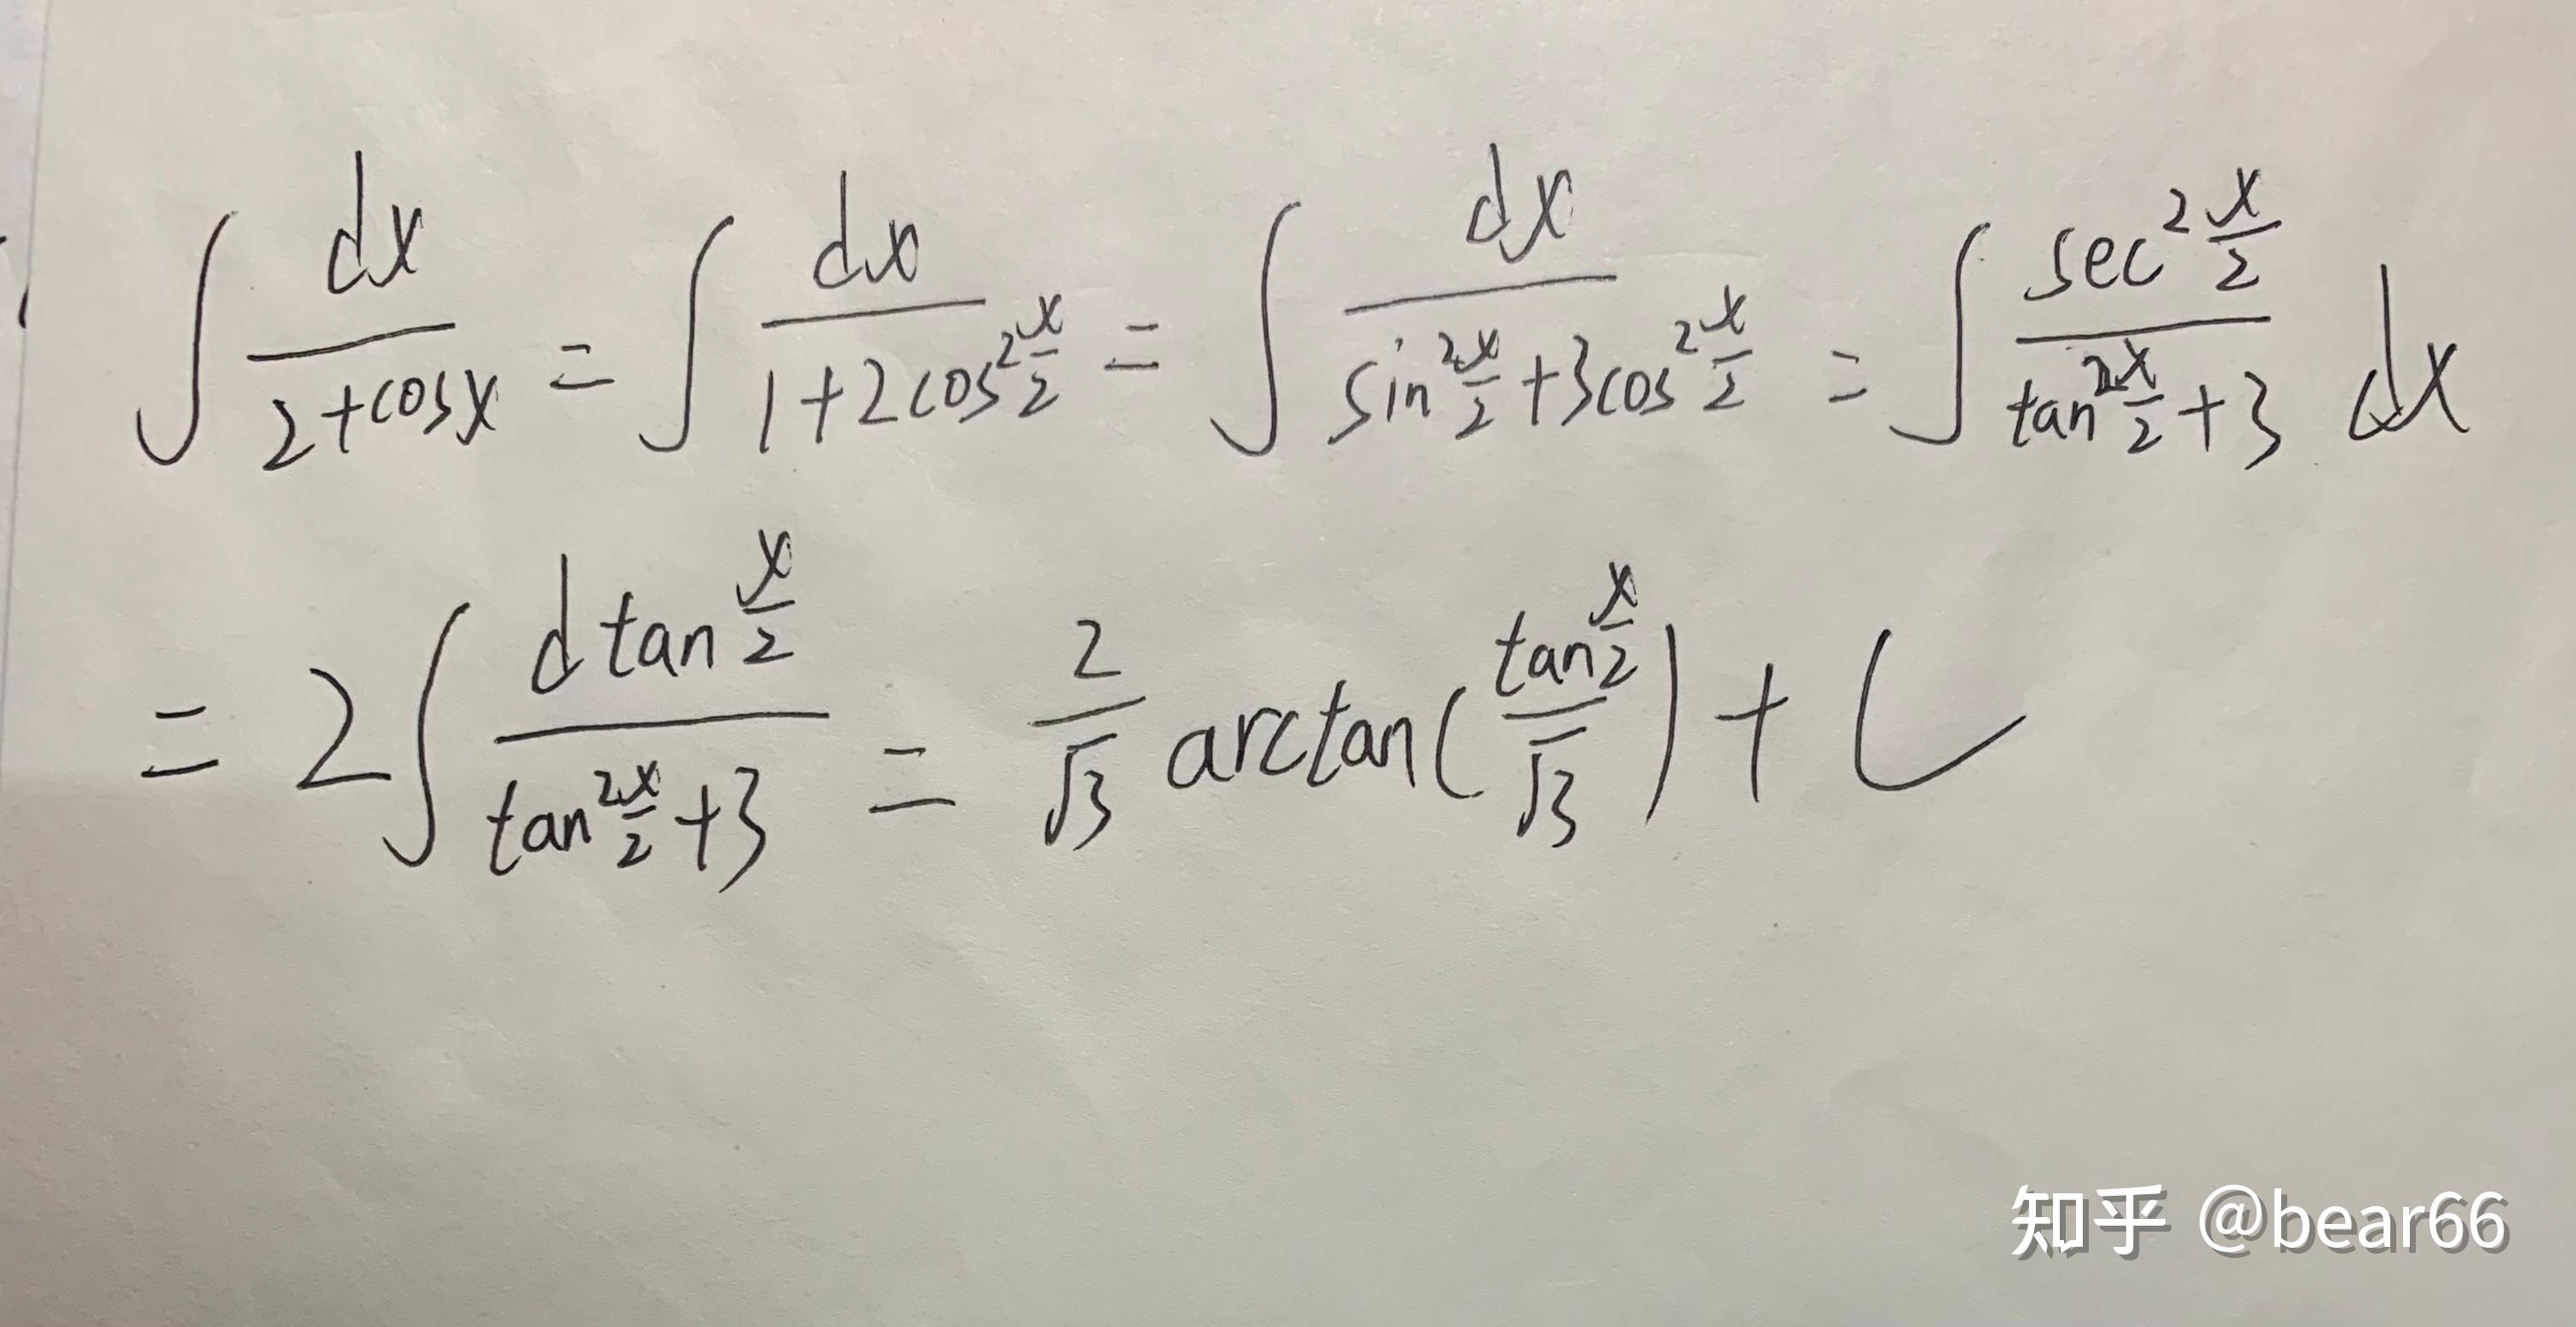 ∫ dx/(2+cosx) = ∫ dx/(1+2cos²(x/2)) = ∫ dx/(sin²(x/2)+3cos²(x/2)) = ∫ sec²(x/2)/(tan²(x/2)+3) dx
= 2∫ d tan(x/2)/(tan²(x/2)+3) = 2/√3 arctan(tan(x/2)/√3) + C
知乎 @bear66